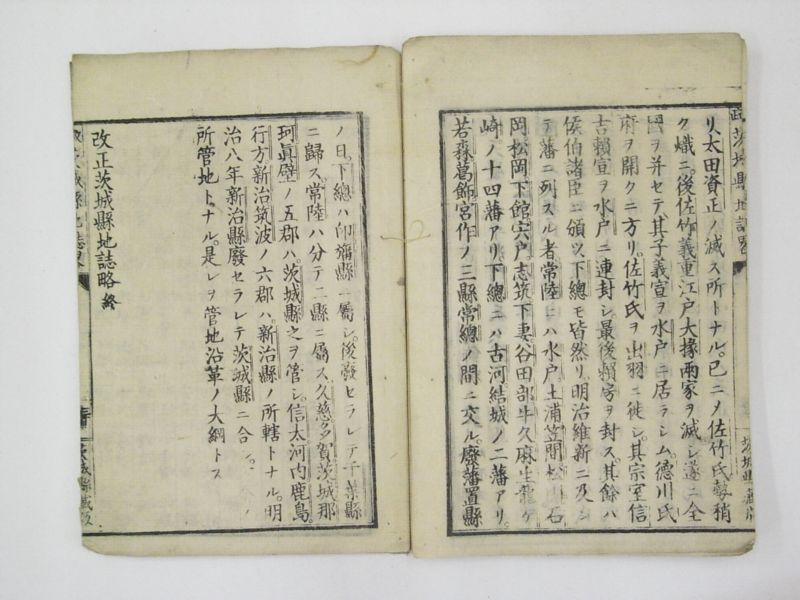 改正茨城縣地誌畧
リ太田資正ノ滅ス所トナル。已ニメ佐竹氏勢稍
ク熾ニ。後佐竹義重江戸大掾兩家ヲ滅シ遂ニ全
國ヲ并セテ其子義宣ヲ水戸ニ居ラシム。德川氏
府ヲ開クニ方リ。佐竹氏ヲ出羽ニ徙シ。其宗室信
吉賴宣ヲ水戸ニ連封シ。最後賴房ヲ封ス。其餘ハ
侯伯諸臣ニ頒ツ。下總モ皆然リ。明治維新ニ及ン
テ藩ニ列スル者常陸ニハ水戸土浦笠間松川石
岡松岡下館宍戸志筑下妻谷田部牛久麻生龍ケ
崎ノ十四藩アリ。下總ニハ古河結城ノ二藩アリ。
若森葛飾宮谷ノ三縣常總ノ間ニ交ル。廢藩置縣
ノ日。下總ハ印旛縣ニ屬シ。後廢セラレテ千葉縣
ニ歸ス。常陸ハ分テ二縣ニ屬ス久慈多賀茨城那
珂眞壁ノ五郡ハ。茨城縣之ヲ管シ。信太河内鹿島。
行方新治筑波ノ六郡ハ。新治縣ノ所轄トナル。明
治八年新治縣廢セラレテ茨城縣ニ合シ。
所管地トナル。是レヲ管地沿革ノ大綱トス
改正茨城縣地誌略 終